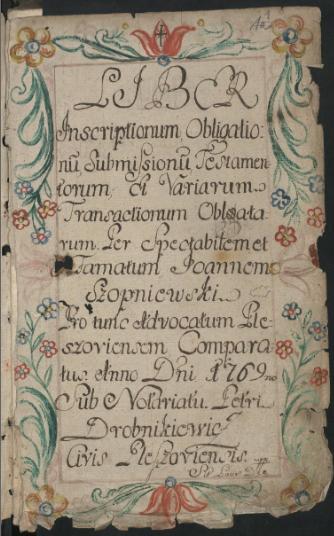 LIBER
Inscriptionum Obligatio:
nū, Submissionū Testamen
torum, et Variarum
Transactionum Oblata:
rum. Per Spectabilem et
Famatum Joannem
Szopniewski
Pro tunc Advocatum Ple:
szoviensem Compara:
tus. Anno Dni 1769no
Sub Notariatu. Petri
Drobnikiewic
Civis Pleszoviensis.